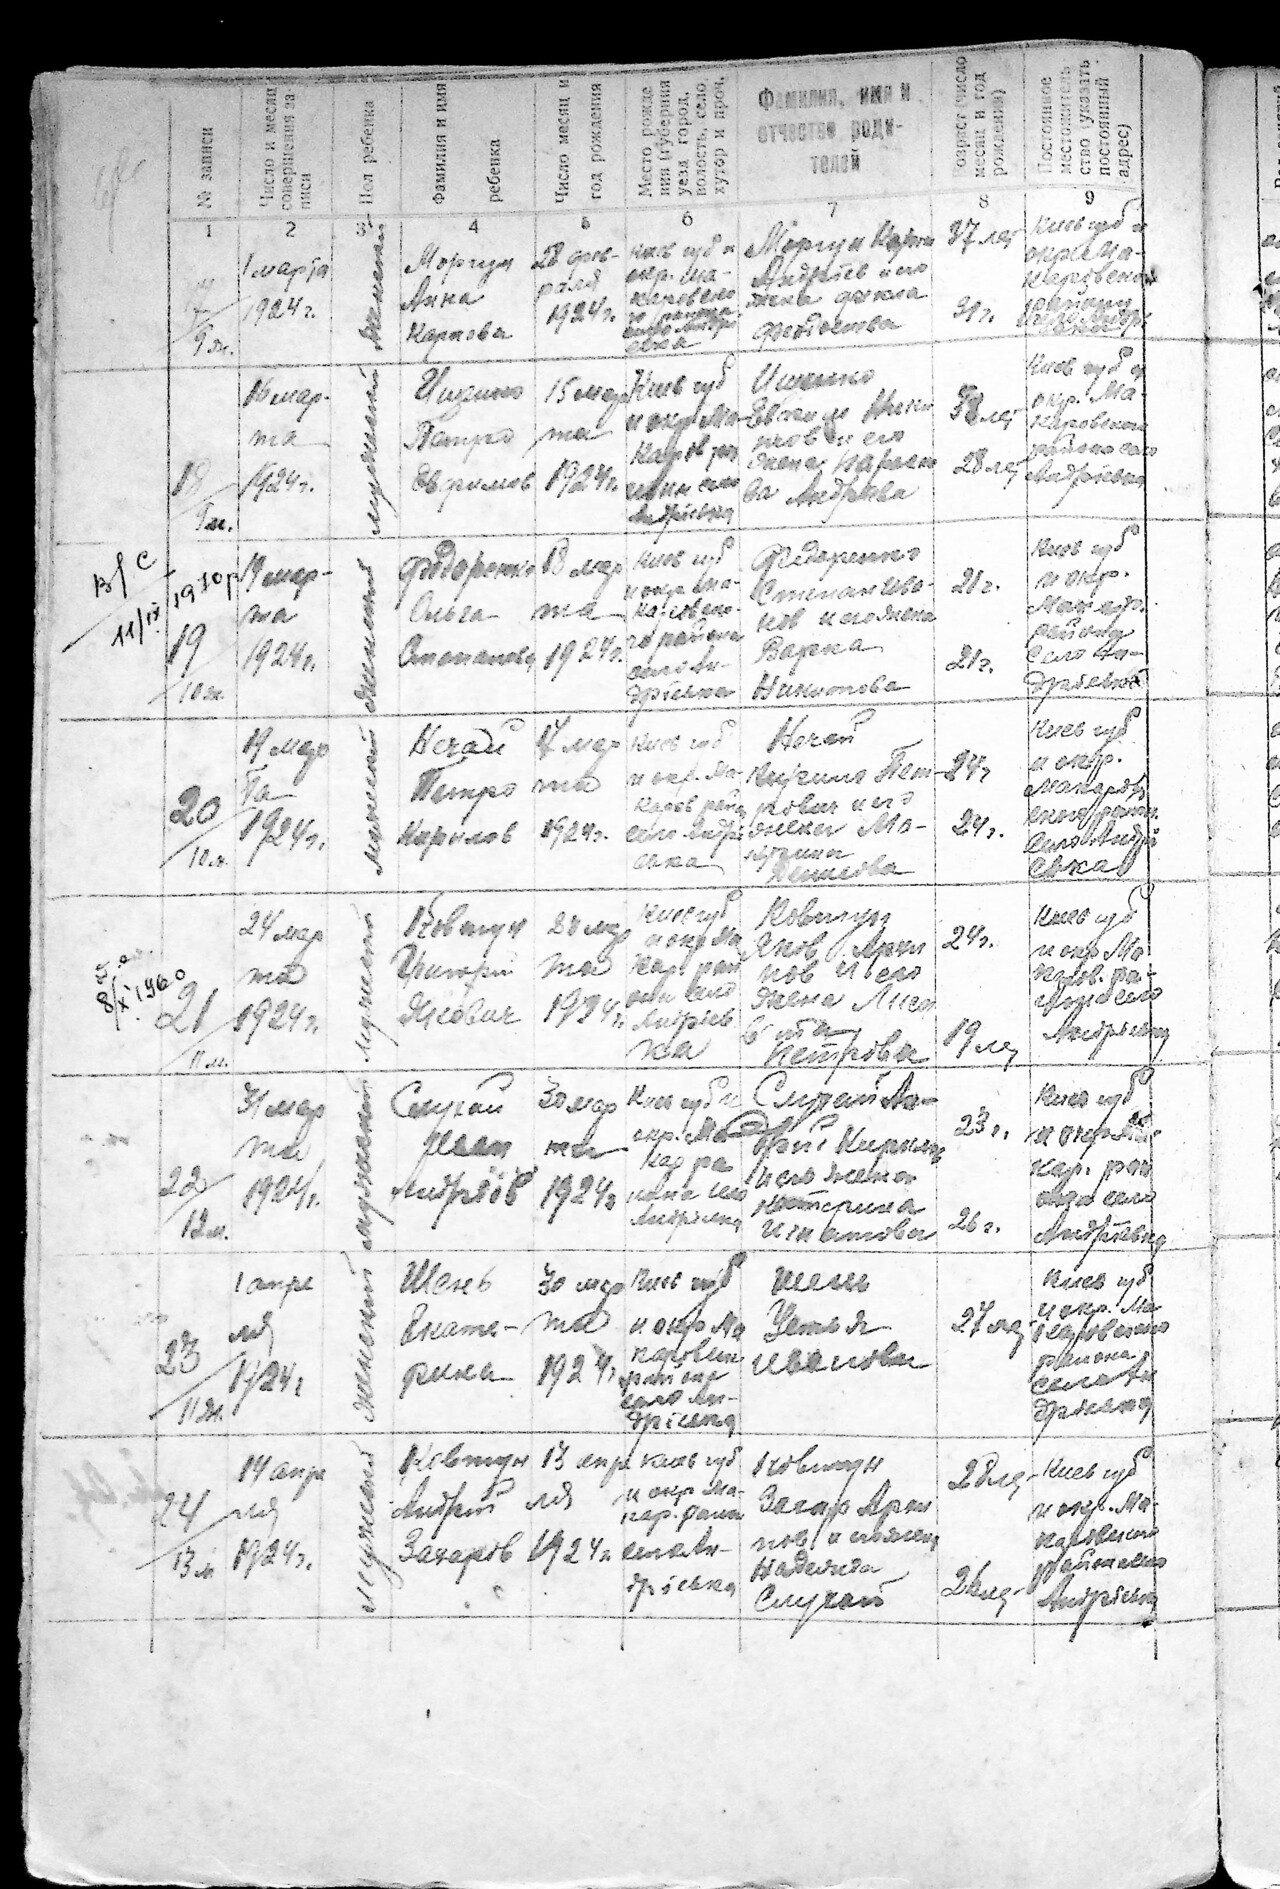 № записи
Число и месяц
совершения за-
писи
Пол ребенка
Фамилия и имя
ребенка
Число месяц и
год рождения
Место рожде
ния (губерния
уезд город,
волость, село
хутор и проч.
Фамилия, имя и
отчество роди-
телей
Возраст (число
месяц и год
рождения)
Постоянное
местожитель
ство (указать
постоянный
адрес)
1
2
3
4
5
6
7
8
9
1 марта
1924 г.
женский
Моргун
Анна
Карпова
28 фев-
раля
1924 г.
Киев губ и
окр. Ма-
каровско
Моргун Карпо
Андріев и его
жена Фекла
37 лет
31 г.
Киев губ и
окр Ма-
каровского
району
18
16 мар-
та
1924 г.
мужеский
Петро
Евфимов
15 мар
та
1924 г.
Киев губ
и окр. Ма-
каров рай
она село
Андрієвка
и его
жена
ва Андріева
38 лет
28 лет
Киев губ и
окр. Ма-
каровского
района село
Андрієвка
В/С
11/IX
1970 р
19
10 ж.
19 мар-
та
1924 г.
женский
Федоренко
Ольга
Степанова
13 мар
та
1924 г.
Киев губ
и окр Ма-
каровско-
го района
село Ан-
дрієвка
Федоренко
Степан Ива-
нов и его жена
Варка
21 г.
21 г.
Киев губ
и окр.
Макар.
району
село Ан-
дрієвка
20
10 м.
19 мар
та
1924 г.
мужеский
Нечай
Петро
Кирилов
17 мар
та
1924 г.
Киев губ
и окр. Ма-
каров рай
село Андрі
євка
Нечай
Кирило Пет-
рович и его
жена Ма-
Денисова
24 г.
24 г.
Киев губ
и окр.
Макаров
село Андрі
євка
8/X 1960
21
11 м.
24 мар
та
1924 г.
мужеский
Ковтун
Григорій
Якович
20 мар
та
1924 г.
Киев губ
и окр Ма
кар. рай
она село
Андріев
ка
Ковтун
Яков Архи
пов и его
жена Лиса
вета
Петровна
24 г.
19 лет
Киев губ
и окр Ма
каров. ра-
йона село
Андріевка
22
12 м.
31 мар
та
1924 г.
мужеский
Слухай
Иван
Андріїв
30 мар
та
1924 г.
Киев губ и
окр. Ма
кар ра
иона село
Андріевка
Слухай Ан-
дрій Кирилов
и его жена
Катерина
Игнатова
23 г.
26 г.
Киев губ
и окр Ма
кар. рай
она село
Андріевка
23
11 ж.
1 апре
ля
1924 г.
женский
Шень
Екате-
рина
30 мар
та
1924 г.
Киев губ
и окр Ма
каровск
района
село Ан-
дрієвка
Шень
Устья
Иванова
27 лет
Киев губ
и окр. Ма
каровского
района
село Ан
дрієвка
24
13 м
14 апре
ля
1924 г.
мужеский
Ковтун
Андрій
Захаров
13 апре
ля
1924 г.
Киев губ
и окр Ма-
кар. район
село Ан-
дрієвка
Ковтун
Захар Архи
пов и его жена
Надежда
Слухай
28 лет
26 лет
Киев губ
и окр. Ма-
каровского
района село
Андріевка